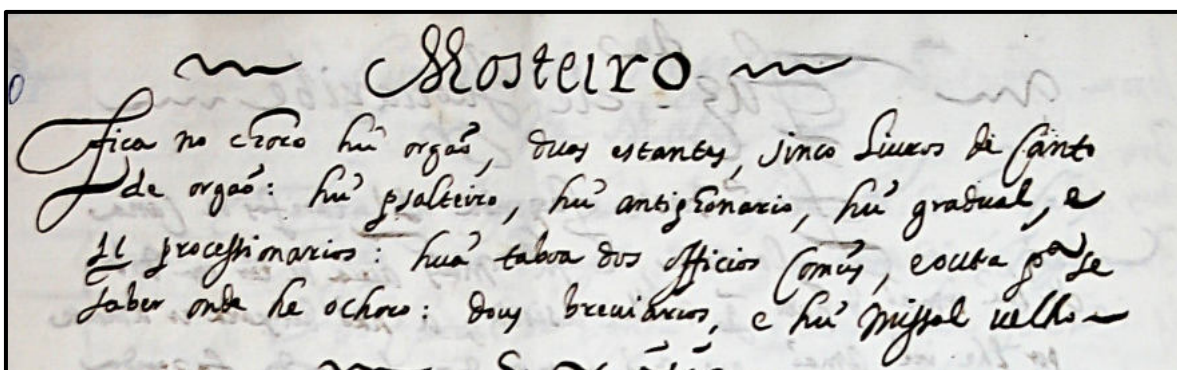 Mosteiro
Fica no choro hũ orgaõ, duas estantes, sinco Liuros de Canto
de orgaõ: hũ psalteiro, hũ antiphonario, hũ gradual, e
11 processionarios: huã taboa dos officios Comũs, e outra pª se
saber onde he o choro: dous breuiarios, e hũ missal uelho